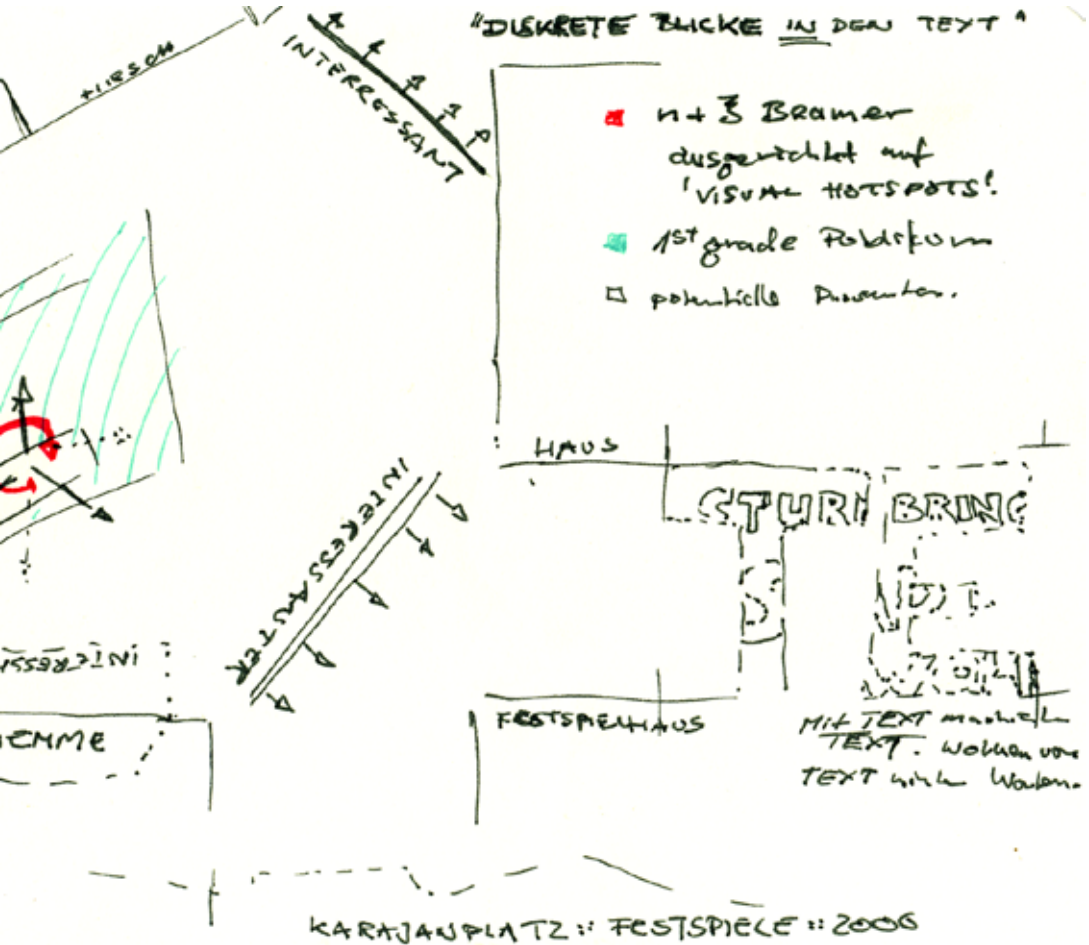 "DISKRETE BLICKE IN DEN TEXT"
HIRSCH
INTERRESSANT
n + 3 Beamer
ausgerichtet auf
'VISUAL HOTSPOTS'.
1st grade Publikum
potentielle
HAUS
STURM BRING
INTERESSANTER
INTERESS
FESTSPIELHAUS
Mit TEXT
TEXT. Wolken von
TEXT
EMME
KARAJANPLATZ :: FESTSPIELE :: 2006